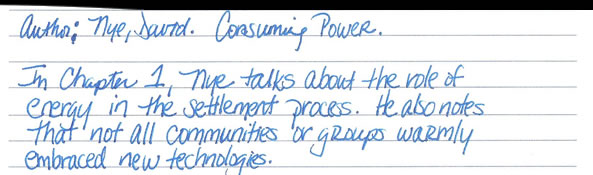 Author: Nye, David. Consuming Power.
In Chapter 1, Nye talks about the role of
energy in the settlement process. He also notes
that not all communities or groups warmly
embraced new technologies.